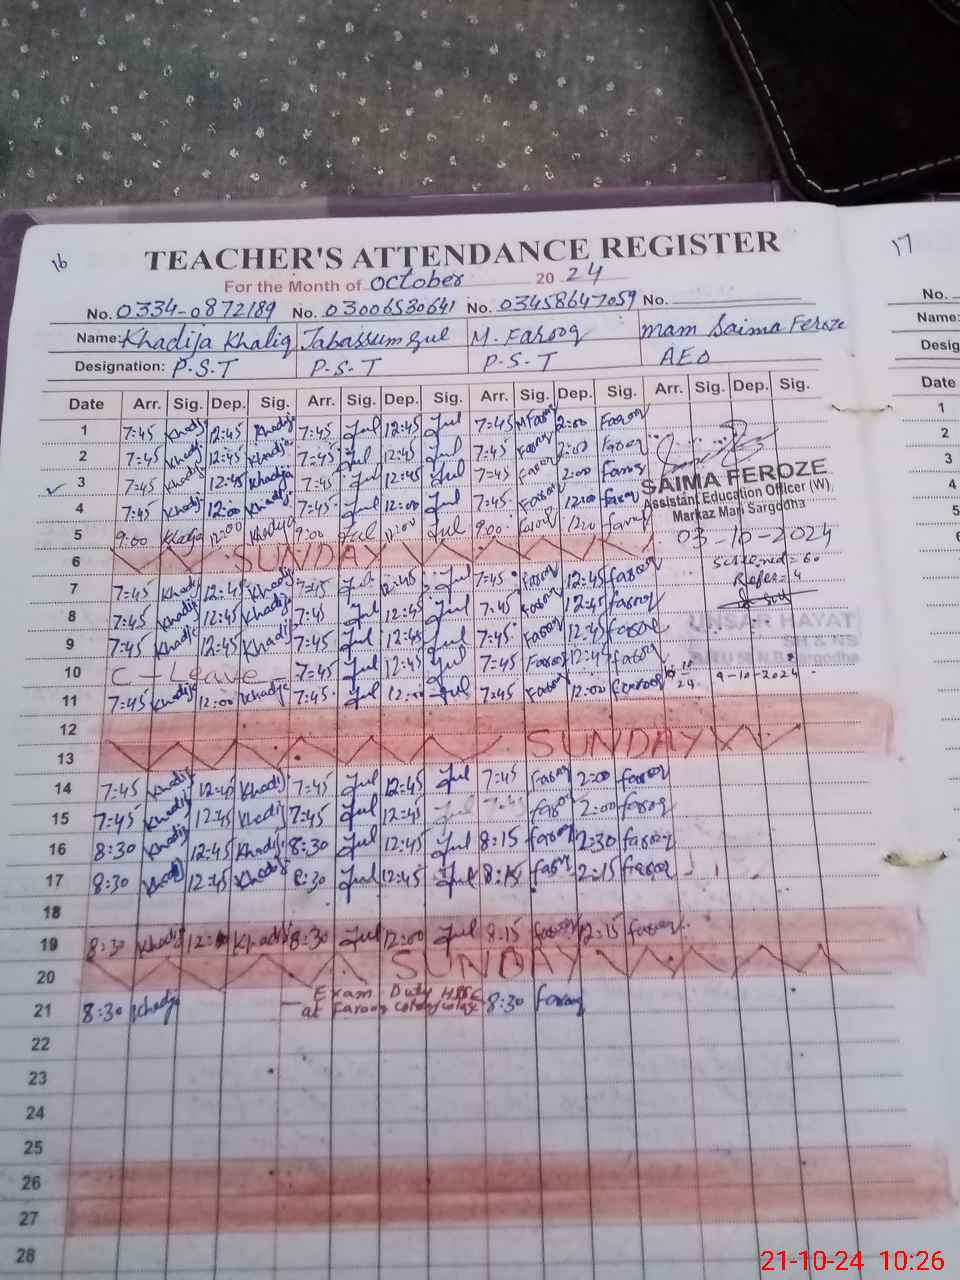 16
17
TEACHER'S ATTENDANCE REGISTER
For the Month of October 2024
No. 0334-0872189 No. 03006530641 No. 03458647059 No.
No.
Name: Khadija Khaliq Tabassum gul M. Farooq mam Saima Feroze
Name:
Designation: P.S.T P.S.T P.S.T AEO
Desig
Date Arr. Sig. Dep. Sig. Arr. Sig. Dep. Sig. Arr. Sig. Dep. Sig. Arr. Sig. Dep. Sig.
Date
1 7:45 Khadij 12:45 Khadija 7:45 Jul 12:45 Jul 7:45 M Faroq 2:00 Farooq
1
2 7:45 Khadij 12:45 Khadija 7:45 Jul 12:45 Jul 7:45 Farooq 2:00 Farooq
2
3 7:45 Khadij 12:45 Khadija 7:45 Jul 12:45 Jul 7:45 Farooq 2:00 Farooq
3
SAIMA FEROZE
Assistant Education Officer (W)
Markaz Mari Sargodha
4 7:45 Khadij 12:00 Khadij 7:45 Jul 12:00 Jul 7:45 Farooq 12:00 farooq
4
5 9:00 Khadija 12:00 Khadija 9:00 Jul 12:00 Jul 9:00 farooq 12:00 farooq
5
03-10-2024
6 SUNDAY
Screened = 60
Refer = 4
7 7:45 Khadij 12:45 Khadija 7:45 Jul 12:45 Jul 7:45 Farooq 12:45 farooq
8 7:45 Khadij 12:45 Khadija 7:45 Jul 12:45 Jul 7:45 Farooq 12:45 farooq
UNSAR HAYAT
SH & NS
9 7:45 Khadija 12:45 Khadija 7:45 Jul 12:45 Jul 7:45 Farooq 12:45 farooq
10 C - Leave - 7:45 Jul 12:45 Jul 7:45 Farooq 12:45 farooq
9-10-2024
11 7:45 Khadija 12:00 Khadija 7:45 Jul 12:00 Jul 7:45 Farooq 12:00 farooq
12 SUNDAY
13
14 7:45 Khadij 12:45 Khadij 7:45 Jul 12:45 Jul 7:45 Farooq 2:00 farooq
15 7:45 Khadij 12:45 Khadij 7:45 Jul 12:45 Jul 7:45 farooq 2:00 farooq
16 8:30 Khadij 12:45 Khadij 8:30 Jul 12:45 Jul 8:15 farooq 2:30 farooq
17 8:30 Khadij 12:45 Khadij 8:30 Jul 12:45 Jul 8:15 farooq 2:15 farooq
18
19 8:30 Khadij Khadij 8:30 Jul 12:00 Jul 8:15 farooq 12:15 farooq
20 SUNDAY
21 8:30 Khadija - Exam Duty at Farooq colony 8:30 farooq
22
23
24
25
26
27
28
21-10-24 10:26